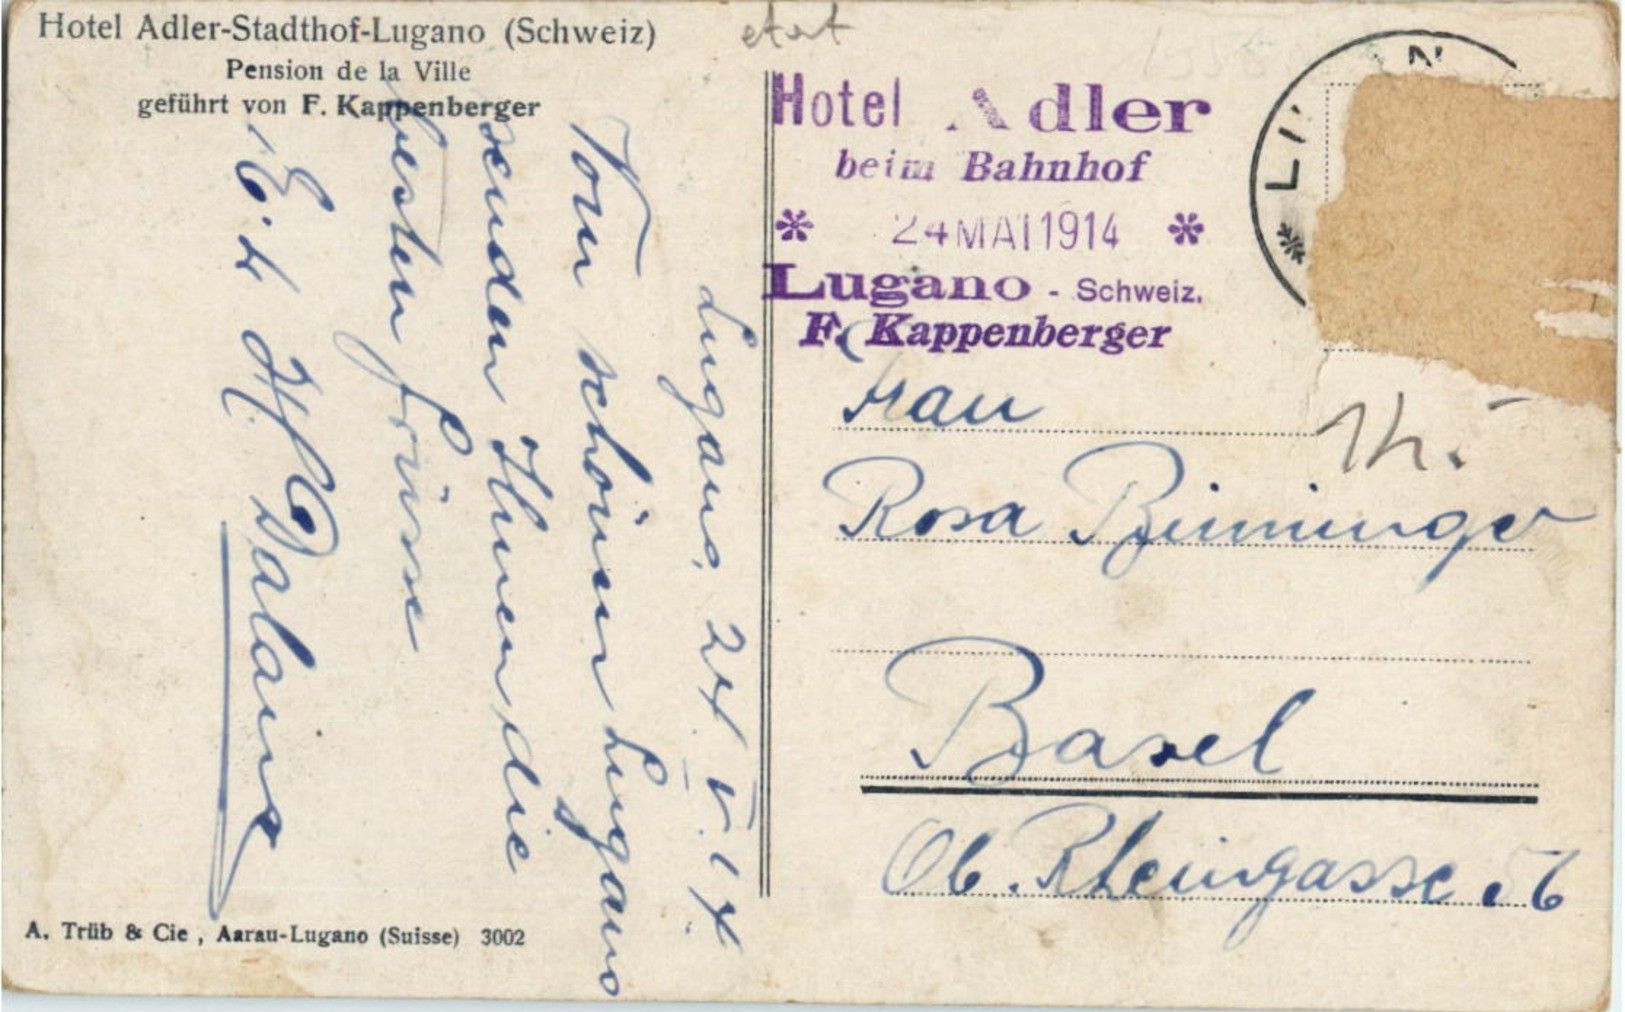 Hotel Adler-Stadthof-Lugano (Schweiz)
Pension de la Ville
geführt von F. Kappenberger
Lugano, 24. V. 14.
Vom schönen Lugano
senden Ihnen die
besten Grüsse
A. Trüb & Cie, Aarau-Lugano (Suisse) 3002
Hotel Adler
beim Bahnhof
* 24 MAI 1914 *
Lugano - Schweiz.
F. Kappenberger
Frau
Rosa
Basel
Ob. Rheingasse 56